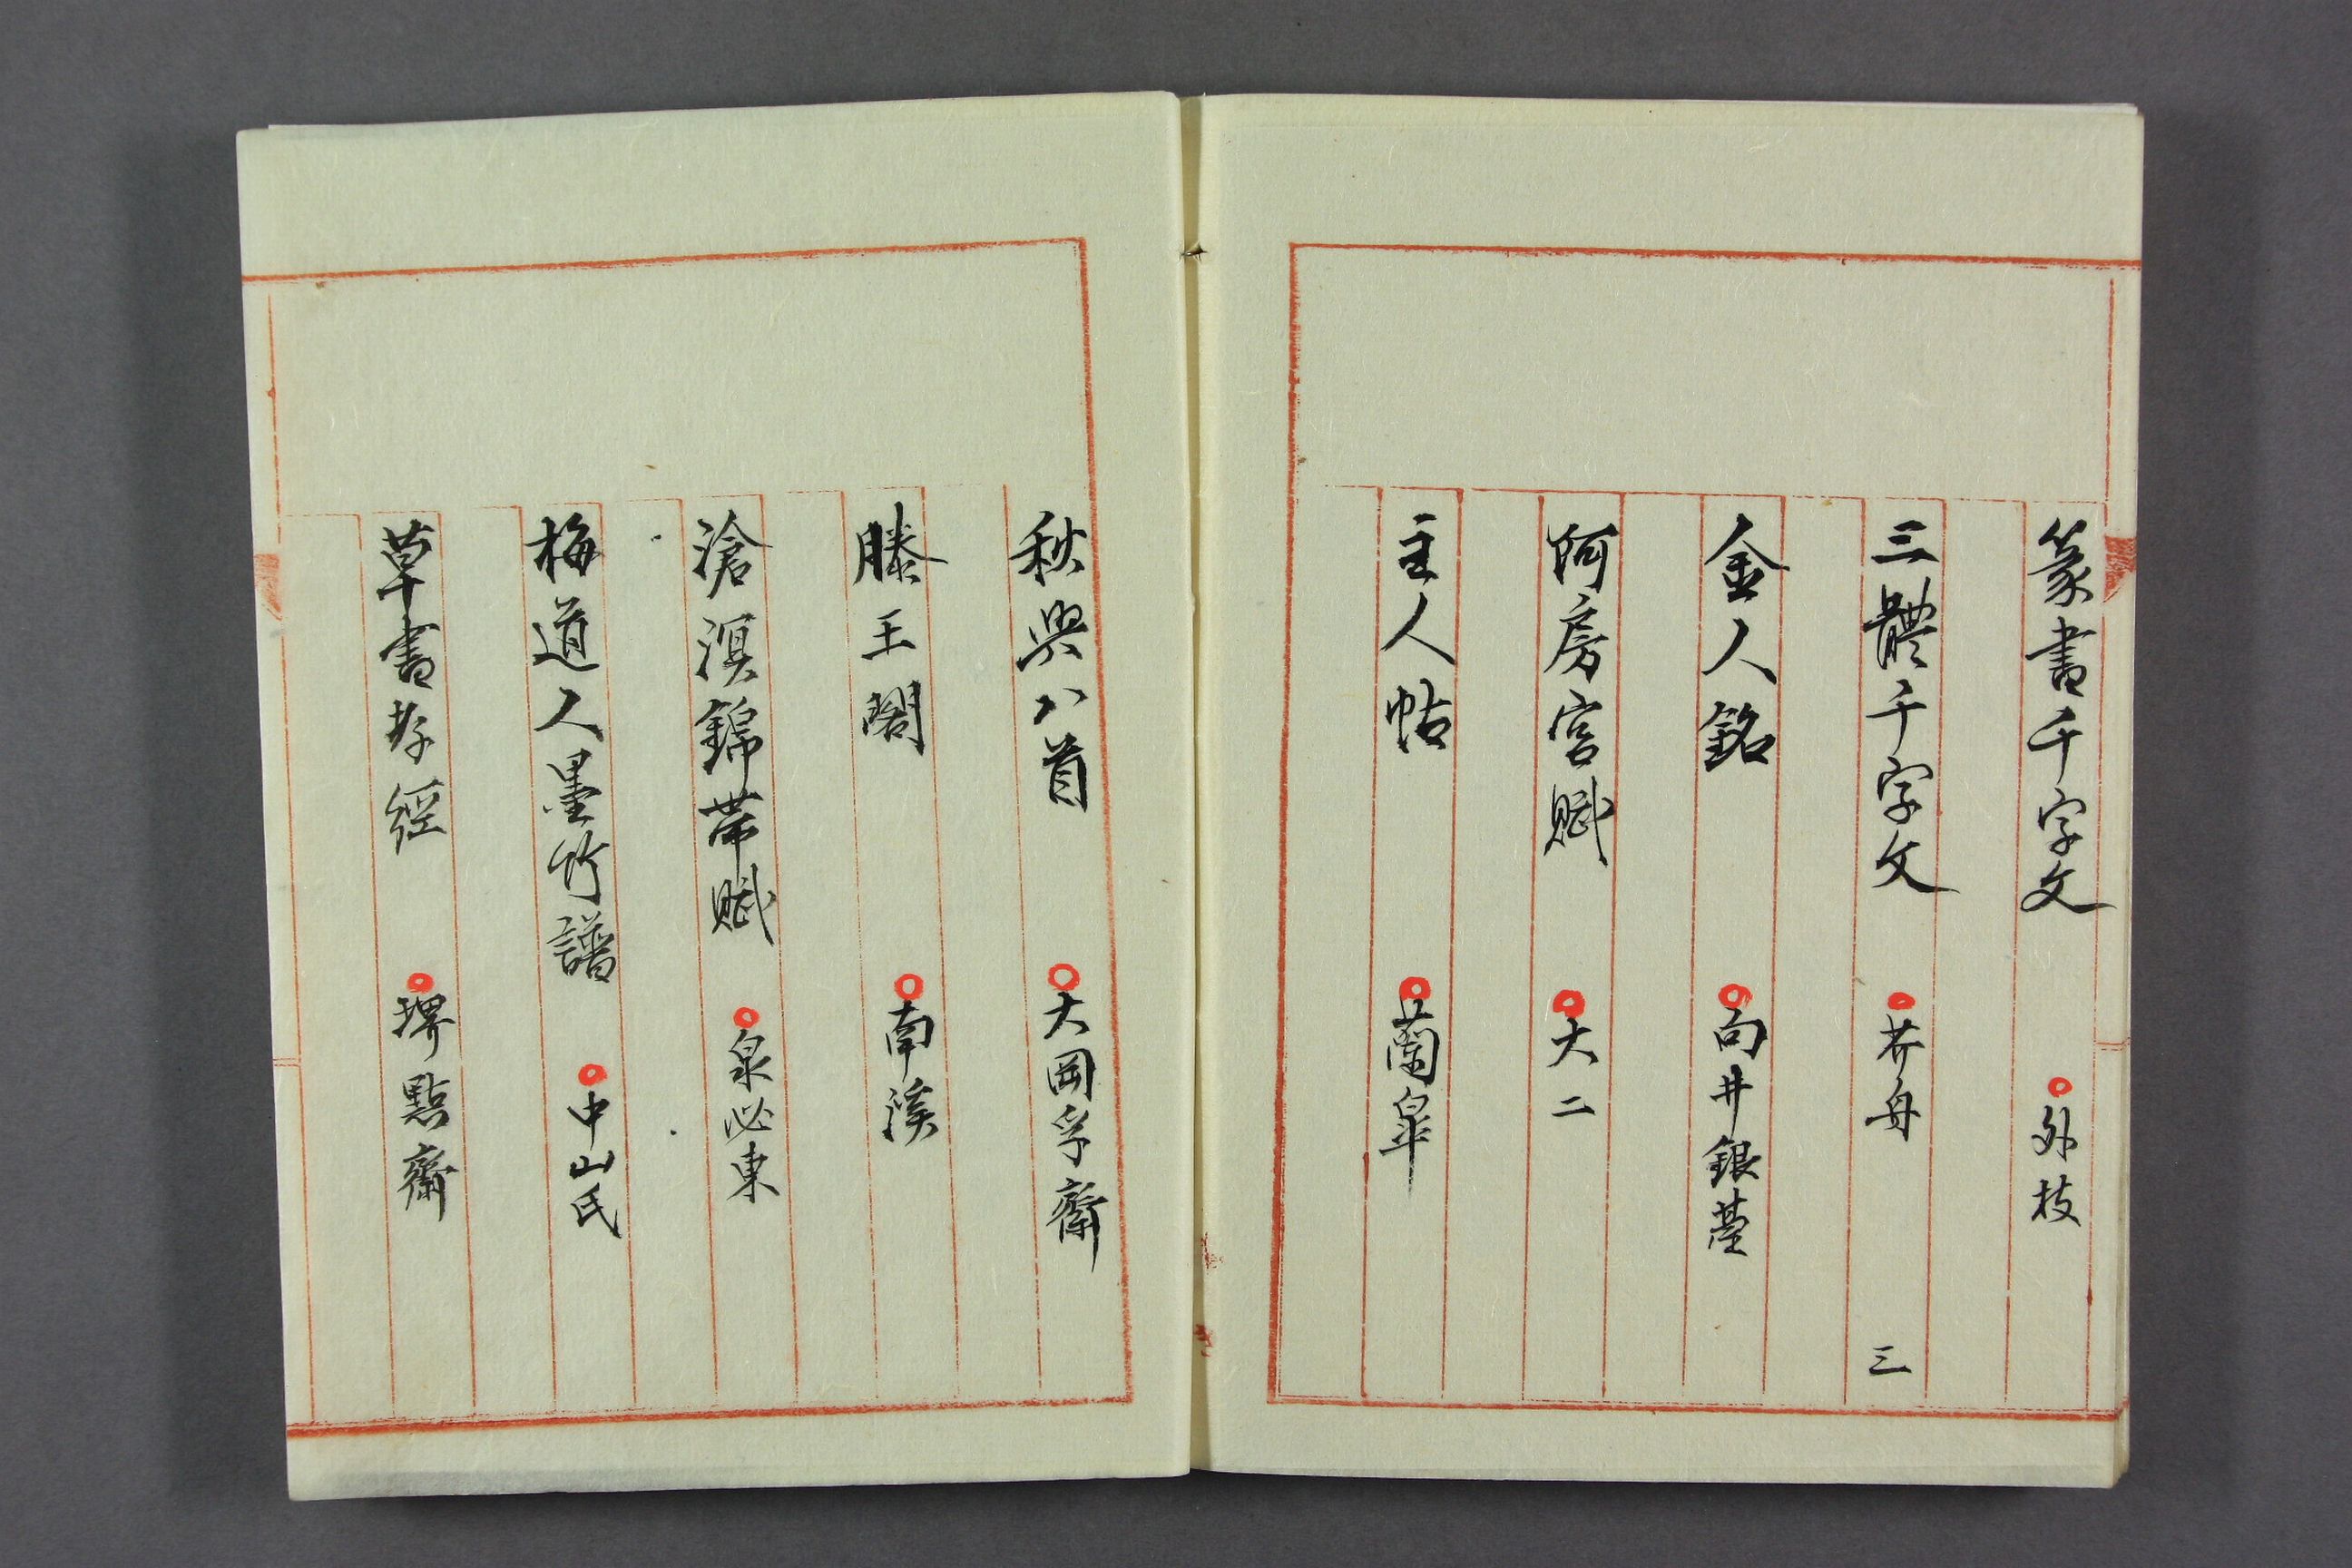 篆書千字文 外枝
三體千字文 芥舟 三
金人銘 向井銀臺
阿房宮賦 大二
主人帖 蘭皐
秋興八首 大岡孚齋
滕王閣 南溪
滄溟錦帯賦 泉必東
梅道人墨竹譜 中山氏
草書孝經 堺點齋